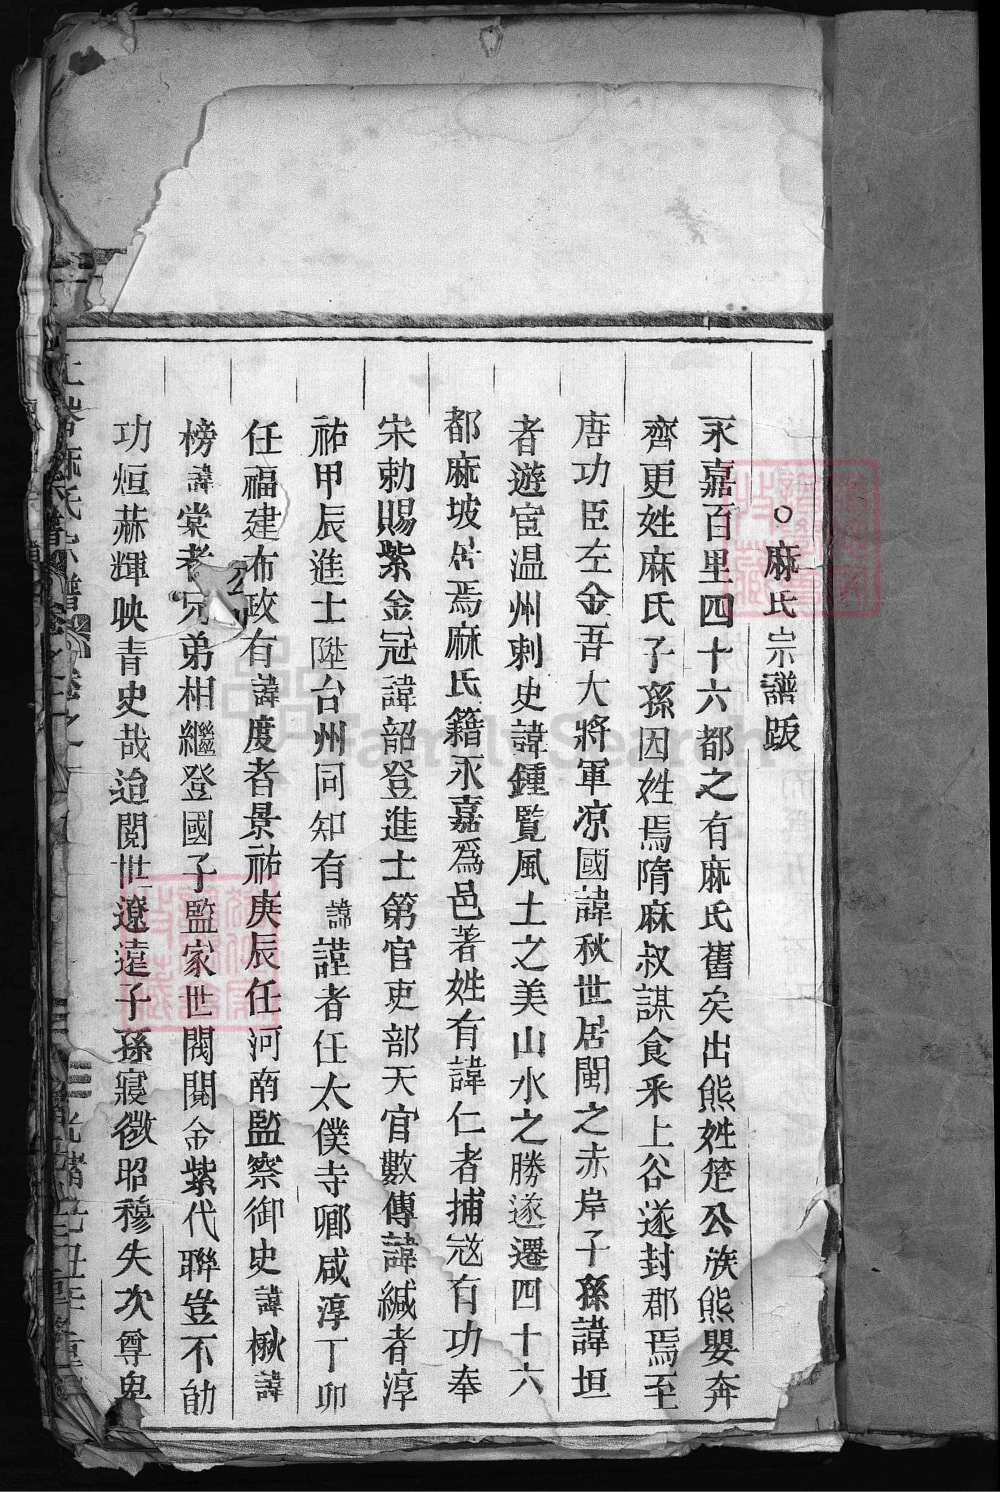 ○麻氏宗譜跋
永嘉百里四十六都之有麻氏舊矣出熊姓楚公族熊嬰奔
齊更姓麻氏子孫因姓焉隋麻叔謀食釆上谷遂封郡焉至
唐功臣左金吾大將軍凉國諱秋世居閩之赤岸子孫諱垣
者遊宦温州刺史諱鍾覧風土之美山水之勝遂遷四十六
都麻坡居焉麻氏籍永嘉為邑著姓有諱仁者捕寇有功奉
宋勅賜紫金冠諱韶登進士第官吏部天官數傳諱緘者淳
祐甲辰進士陞台州同知有諱謹者任太僕寺卿咸淳丁卯
任福建布政有諱度者景祐庚辰任河南監察御史諱楸諱
榜諱棠者兄弟相繼登國子監家世閥閱金紫代聯豈不勛
功烜赫輝映青史哉迨閱世遼遠子孫寢微昭穆失次尊卑
FamilySearch